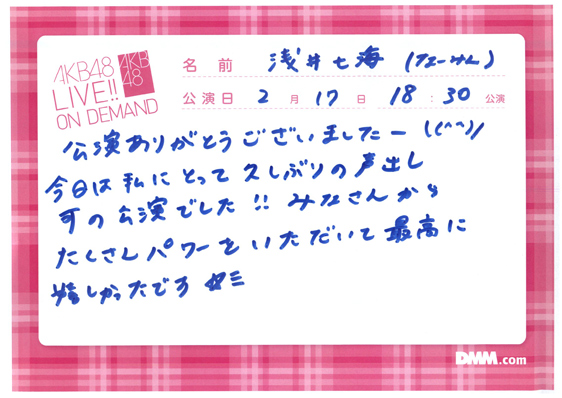 AKB48
LIVE!!
ON DEMAND
AKB
48
名前 浅井七海 (なーみん)
公演日 2月17日 18:30 公演
公演ありがとうございましたー \(^^)/
今日は私にとって久しぶりの声出し
可の公演でした!! みなさんから
たくさんパワーをいただいて最高に
嬉しかったです☆彡
DMM.com